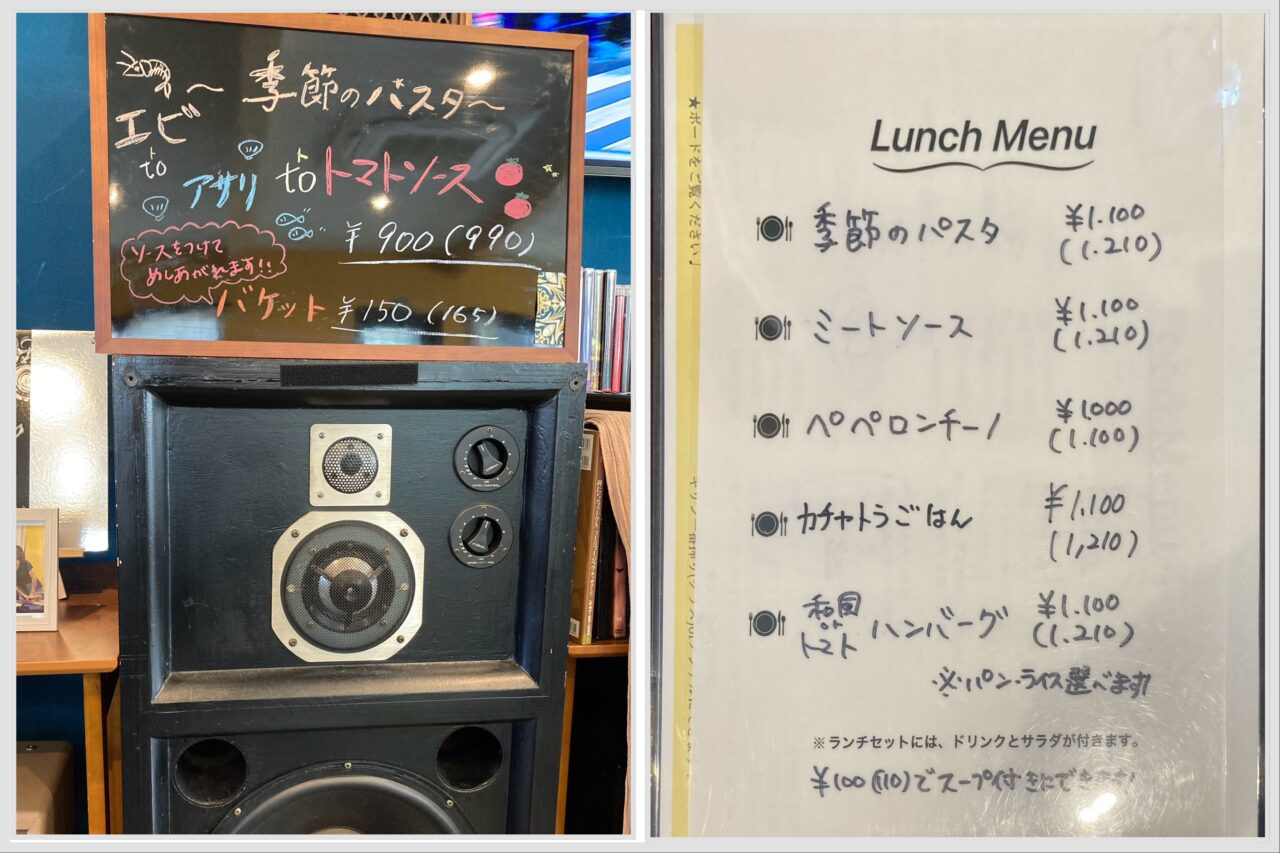 ～季節のパスタ～
エビ
to
ト
アサリ
to
ト
トマトソース
¥900(990)
ソースをつけて
めしあがれます!!
バケット ¥150(165)
LEVEL CONTROL
★ボードをご覧ください！
Lunch Menu
季節のパスタ ¥1.100
(1.210)
ミートソース ¥1.100
(1.210)
ペペロンチーノ ¥1000
(1.100)
カチャトラごはん ¥1.100
(1,210)
和風
or
トマト
ハンバーグ ¥1.100
(1.210)
※パン・ライス選べます!
※ランチセットには、ドリンクとサラダが付きます。
¥100(110)でスープ付きにできます!